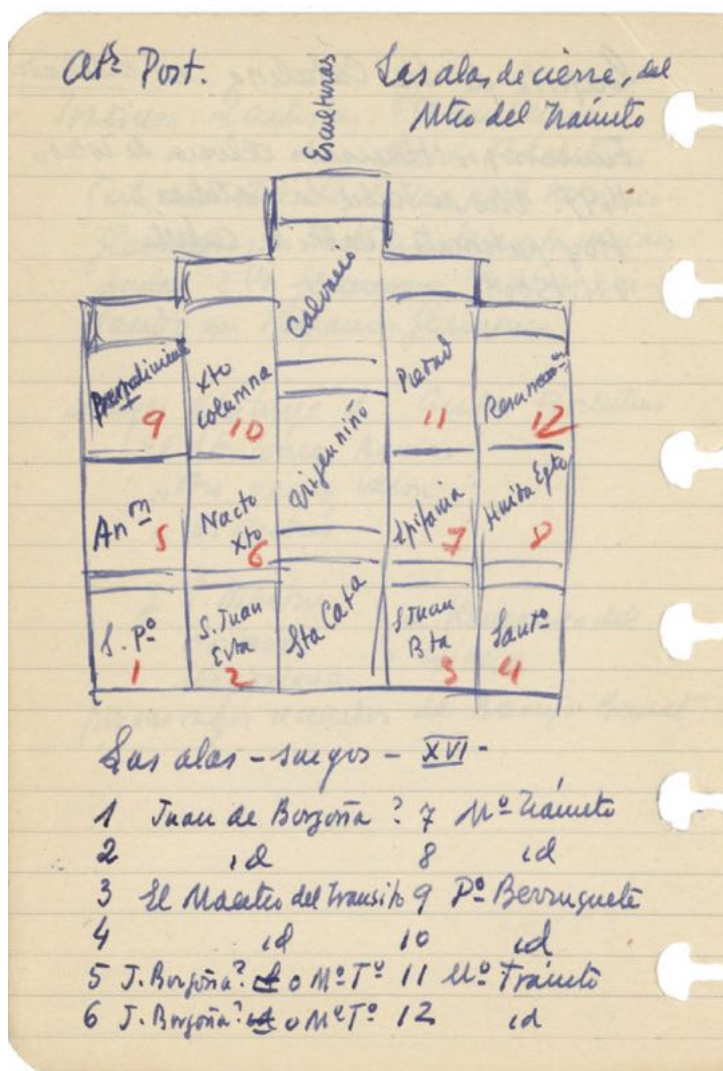 Atr. Post. Las alas de cierre, del
Mtro del Tránsito
Esculturas
Calvario
Prendimiento
9
Xto
columna
10
Piedad
11
Resurrección
12
Anm
5
Nacto
Xto
6
Virgen niño
Epifania
7
Huida Egto
8
S. Pº
1
S. Juan
Evta
2
Sta Cata
S Juan
Bta
3
Santº
4
Las alas - sargas - XVI -
1 Juan de Borgoña ? 7 Mº Tránsito
2 id 8 id
3 El Maestro del Transito 9 Pº Berruguete
4 id 10 id
5 J. Borgoña? o Mº Tº 11 Mº Tránsito
6 J. Borgoña? o Mº Tº 12 id